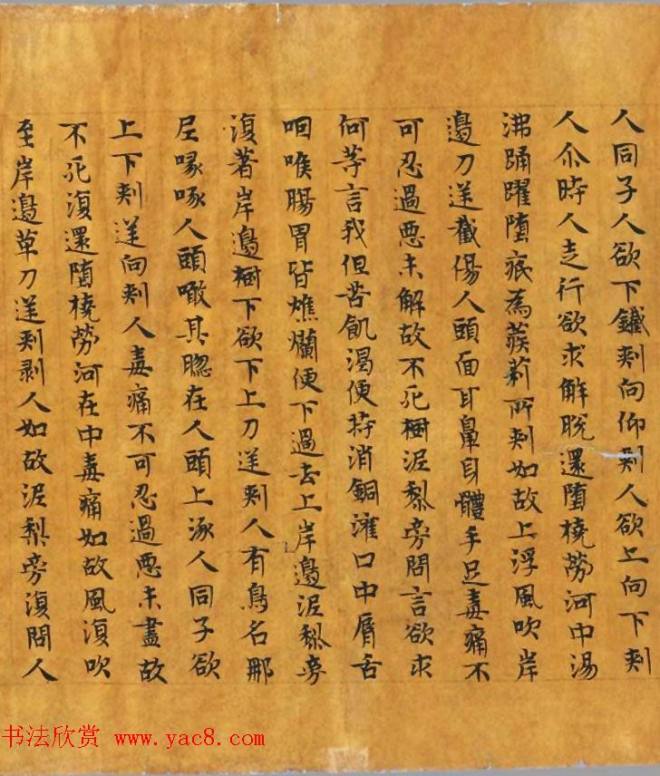 人同子人欲下鐵刺向仰刺人欲上向下刺
人尒時人走行欲求解脫還墮橈勞河中湯
沸踊躍墮底為蒺莿所刺如故上浮風吹岸
邊刀逆截傷人頭面耳鼻身體手足毒痛不
可忍過惡未解故不死樹泥梨旁問言欲求
何等言我但苦飢渴便持消銅灌口中脣舌
咽喉腸胃皆燋爛便下過去上岸邊泥梨旁
復著岸邊樹下欲下上刀逆刺人有鳥名那
𡰱喙啄人頭噉其腦在人頭上逐人同子欲
上下刺逆向刺人毒痛不可忍過惡未盡故
不死復還墮橈勞河在中毒痛如故風復吹
至岸邊草刀逆刺剥人如故泥梨旁復問人
书法欣赏 www.yac8.com